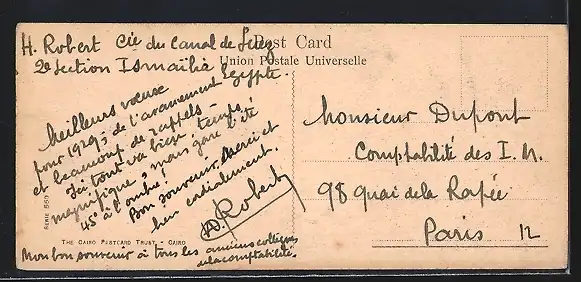 H. Robert Cie du Canal de Suez
2e Section Ismaïlia
Egypte.
Post Card
Union Postale Universelle
Meilleurs vœux
pour 1929, de l'avancement
et beaucoup de rappels -
Ici tout va bien, temps
magnifique, mais gare l'été
45° à l'ombre!
Bon souvenir, merci et
bien cordialement.
H. Robert
Mon bon souvenir à tous les anciens collègues
de la comptabilité.
SERIE 560
THE CAIRO POSTCARD TRUST - CAIRO
Monsieur Dupont
Comptabilité des I. N.
98 Quai de la Rapée
Paris 12